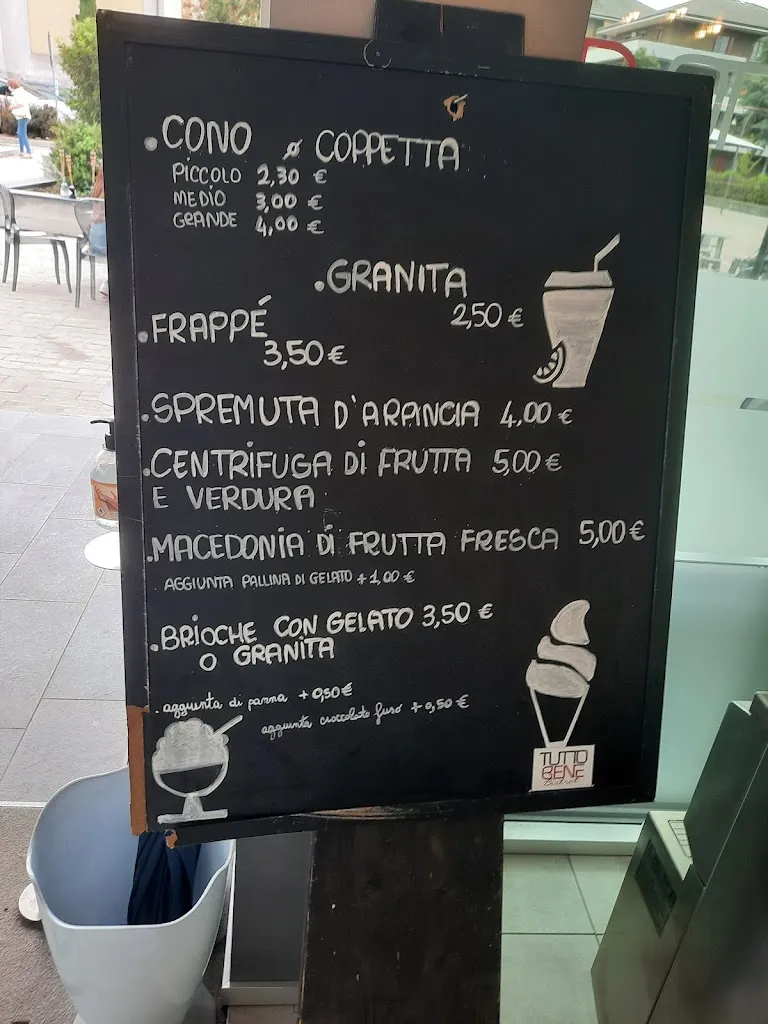 .CONO o COPPETTA
PICCOLO 2,30 €
MEDIO 3,00 €
GRANDE 4,00 €
.GRANITA
2,50 €
.FRAPPÉ
3,50 €
.SPREMUTA D'ARANCIA 4,00 €
.CENTRIFUGA DI FRUTTA 5,00 €
E VERDURA
.MACEDONIA DI FRUTTA FRESCA 5,00 €
. AGGIUNTA PALLINA DI GELATO + 1,00 €
.BRIOCHE CON GELATO 3,50 €
O GRANITA
. aggiunta di panna + 0,50 €
aggiunta cioccolato fuso + 0,50 €
TUTTO
BENE